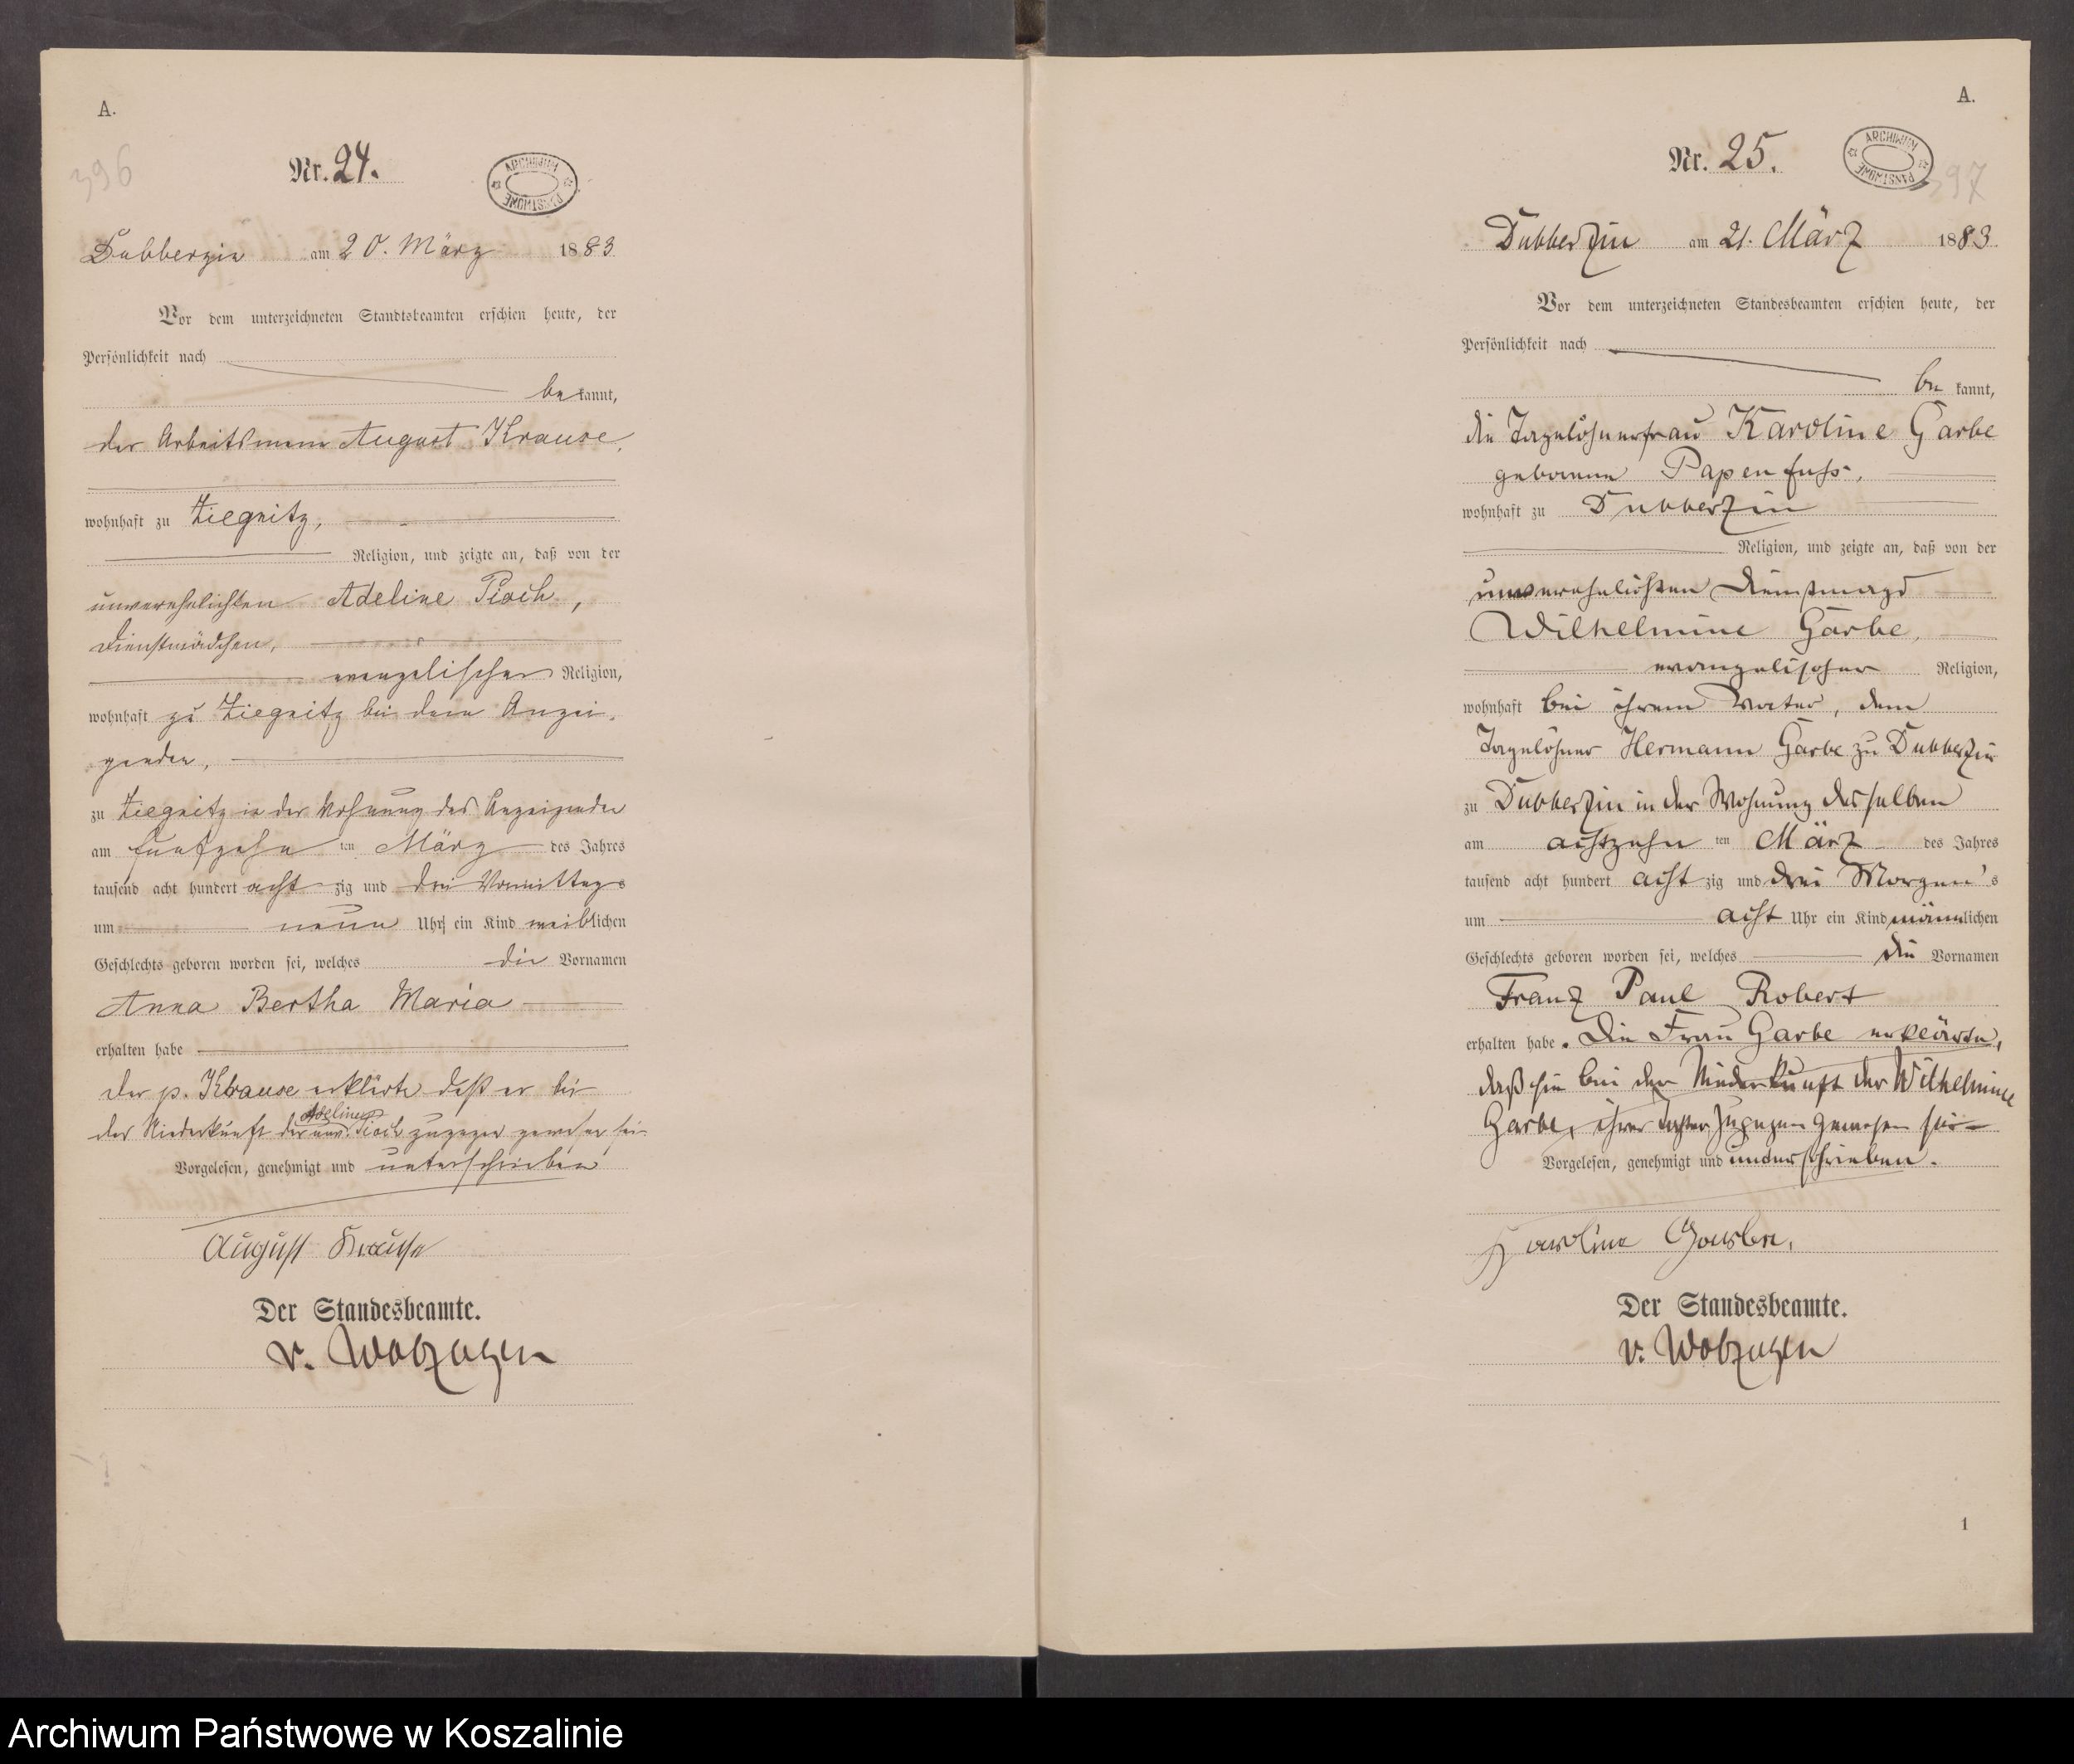 A.
396
Nr. 24.
ARCHIWUM PAŃSTWOWE
Dubberzin am 20. März 1883
Vor dem unterzeichneten Standtsbeamten erschien heute, der
Persönlichkeit nach
be kannt,
der Arbeitsmann August Krause,
wohnhaft zu Ziegnitz,
Religion, und zeigte an, daß von der
unverehelichten Adeline Pioch,
Dienstmädchen,
evangelischer Religion,
wohnhaft zu Ziegnitz bei dem Anzei-
genden,
zu Ziegnitz in der Wohnung des Anzeigenden
am fünfzehn ten März des Jahres
tausend acht hundert acht zig und drei Vormittags
um neun Uhr ein Kind weiblichen
Geschlechts geboren worden sei, welches die Vornamen
Anna Bertha Maria
erhalten habe
Der p. Krause erklärte daß er bei
der Niederkunft der unv. Adeline Pioch zugegen gewesen sei.
Vorgelesen, genehmigt und unterschrieben
August Krause
Der Standesbeamte.
v. Wolzogen
A.
397
Nr. 25.
ARCHIWUM PAŃSTWOWE
Dubberzin am 21. März 1883.
Vor dem unterzeichneten Standesbeamten erschien heute, der
Persönlichkeit nach
be kannt,
die Tagelöhnerfrau Karoline Garbe
geborene Papenfuss,
wohnhaft zu Dubberzin
Religion, und zeigte an, daß von der
unverehelichten Dienstmagd
Wilhelmine Garbe,
evangelischer Religion,
wohnhaft bei ihrem Vater, dem
Tagelöhner Hermann Garbe zu Dubberzin
zu Dubberzin in der Wohnung desselben
am achtzehn ten März des Jahres
tausend acht hundert acht zig und drei Morgen's
um acht Uhr ein Kind männlichen
Geschlechts geboren worden sei, welches die Vornamen
Franz Paul Robert
erhalten habe. Die Frau Garbe erklärte,
daß sie bei der Niederkunft der Wilhelmine
Garbe, ihrer Tochter, zugegen gewesen sei
Vorgelesen, genehmigt und unterschrieben.
Karoline Garbe,
Der Standesbeamte.
v. Wolzogen
1
Archiwum Państwowe w Koszalinie